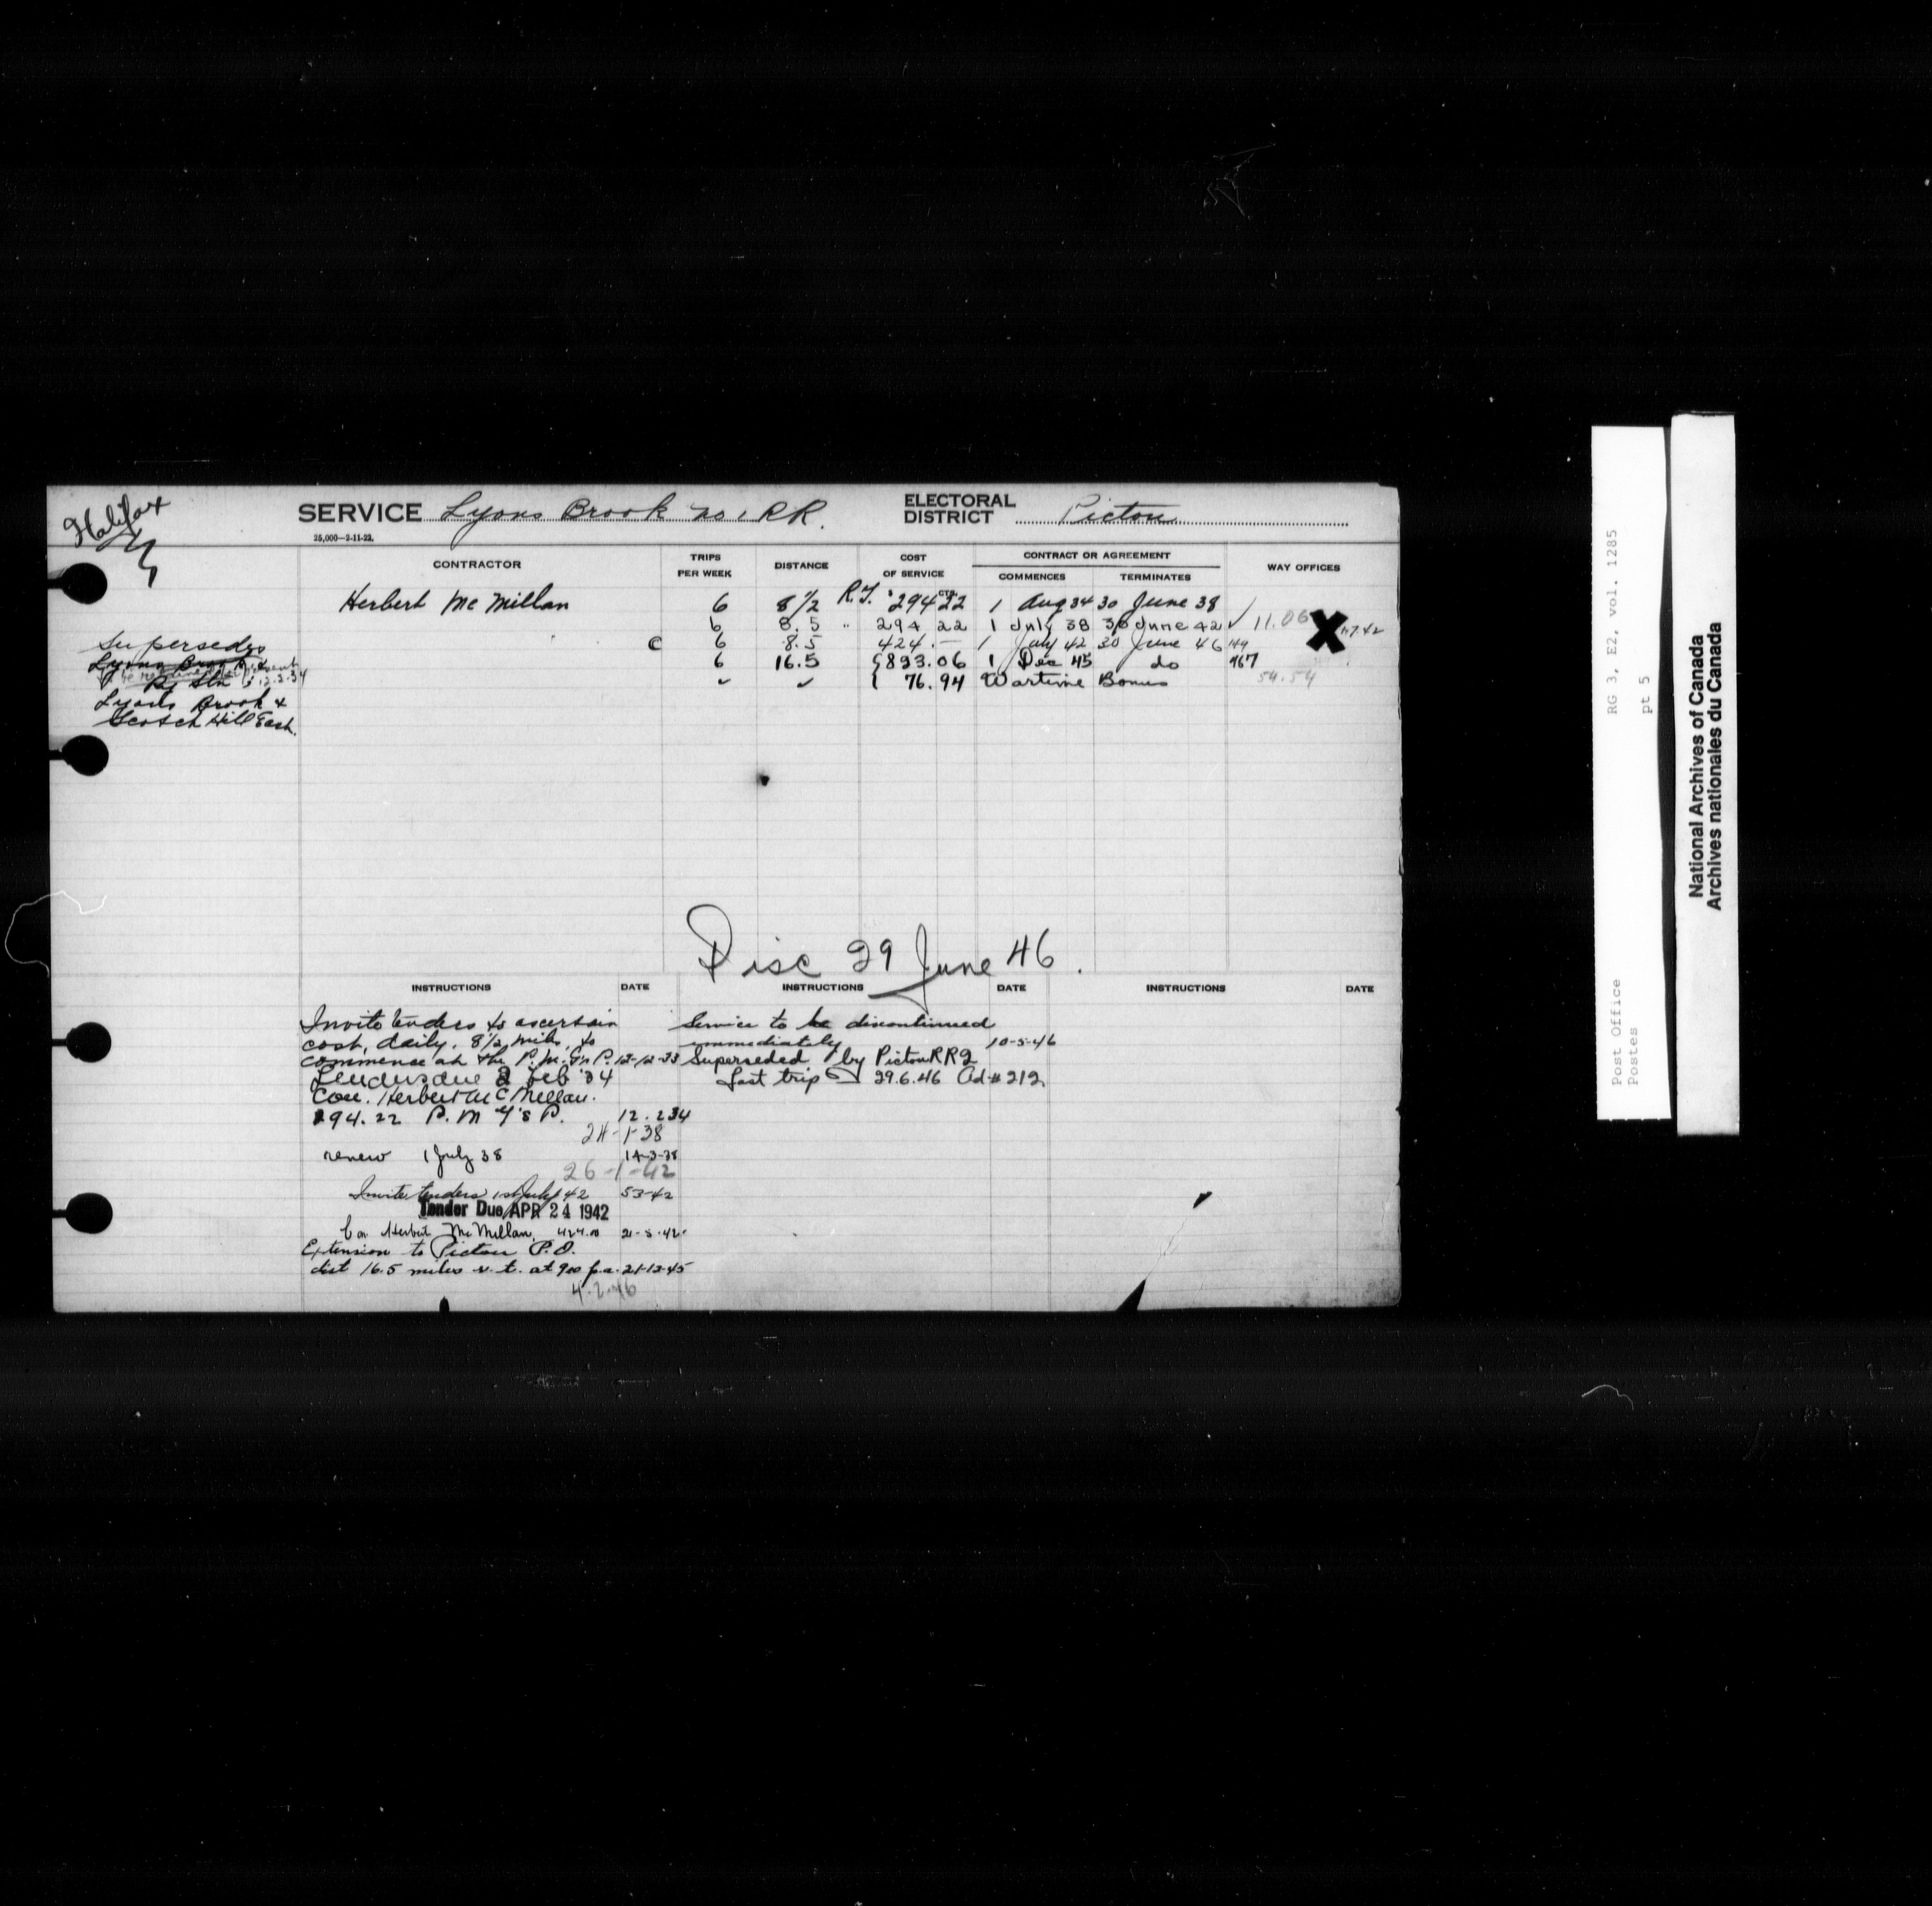 Halifax
SERVICE Lyons Brook no 1 RR.
ELECTORAL DISTRICT Pictou
25,000—2-11-22.
CONTRACTOR TRIPS PER WEEK DISTANCE COST OF SERVICE CONTRACT OR AGREEMENT COMMENCES TERMINATES WAY OFFICES
$ CTS.
Herbert McMillan 6 8 1/2 R.T. 294 22 1 Aug 34 30 June 38
6 8.5 " 294 22 1 July 38 30 June 42 ✓ 11.06 X
c 6 8.5 424.— 1 July 42 30 June 46 149
6 16.5 { 823.06 1 Dec 45 do 467
✓ ✓ { 76.94 Wartime Bonus 54.54
Supersedes
Lyons Brook &
Ry Stn
12.2.34
Lyons Brook &
Scotch Hill East.
Disc 29 June 46.
INSTRUCTIONS DATE INSTRUCTIONS DATE INSTRUCTIONS DATE
Invite tenders to ascertain
cost, daily. 8 1/2 miles, to
commence at the P.M.G's P. 12-12-33
Tenders due 2 Feb '34
Con. Herbert McMillan.
294.22 P.M G's P. 12.2 34
24-1-38
renew 1 July 38 14-3-38
26-1-42
Invite tenders 1st July 42 5 3-42
Tender Due APR 24 1942
Con Herbert McMillan 424.00 21-5-42
Extension to Pictou P.O.
dist 16.5 miles r.t. at 900 p.a. 21-12-45
4.2.46
Service to be discontinued
immediately 10-5-46
Superseded by Pictou RR 2
Last trip 29.6.46 Ad # 212
RG 3, E2, vol. 1285
pt 5
Post Office
Postes
National Archives of Canada
Archives nationales du Canada